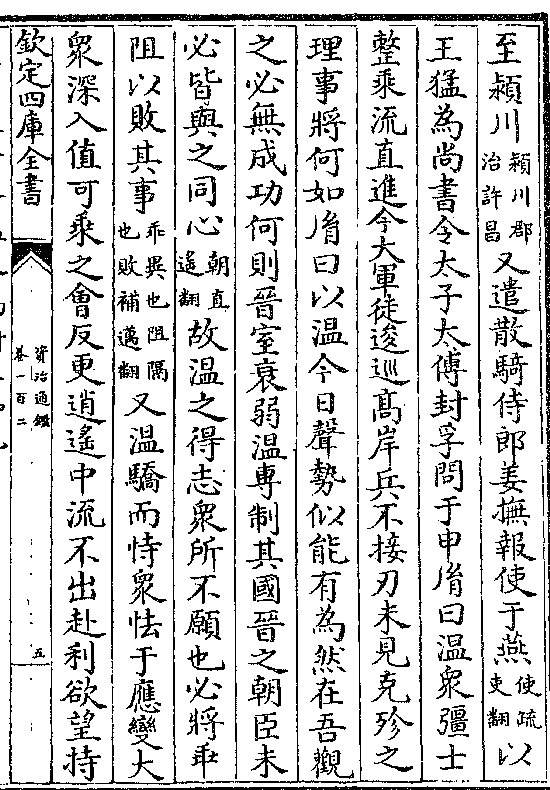 至潁川潁川郡治許昌又遣散騎侍郎姜撫報使于燕使疏吏翻以
王猛為尚書令太子太傅封孚問于申胤曰溫衆彊士
整乗流直進今大軍徒逡巡髙岸兵不接刃未見克殄之
理事將何如胤曰以溫今日聲勢似能有為然在吾觀
之必無成功何則晉室衰弱溫專制其國晉之朝臣未
必皆與之同心朝直遙翻故溫之得志衆所不願也必將乖
阻以敗其事乖異也阻隔也敗補邁翻又溫驕而恃衆怯于應變大
衆深入值可乗之會反更逍遙中流不出赴利欲望持
欽定四庫全書
資治通鑑
卷一百二
五